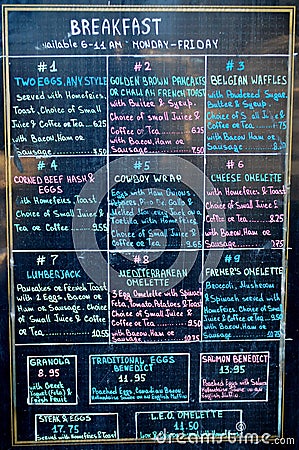 BREAKFAST
available 6-11 AM - MONDAY-FRIDAY
#1
TWO EGGS, ANY STYLE
served with Homefries,
Toast, Choice of Small
Juice & Coffee or Tea
with Bacon, Ham or
Sausage
#2
GOLDEN BROWN PANCAKES
OR CHALLAH FRENCH TOAST
with Butter & Syrup.
Choice of small Juice &
Coffee or Tea 6.25
with Bacon, Ham or
Sausage 7.50
#3
BELGIAN WAFFLES
with Powdered Sugar,
Butter & Syrup.
Choice of Small Juice &
Coffee or Tea
with Bacon, Ham or
Sausage
#4
CORNED BEEF HASH &
EGGS
with Homefries, Toast
Choice of Small Juice &
Tea or Coffee 9.55
#5
COWBOY WRAP
Eggs with Ham, Onions
Peppers, Pico De Gallo &
Melted Monterey Jack in a
Tortilla with Homefries
Choice of Small Juice &
Coffee or Tea 9.65
#6
CHEESE OMELETTE
with Homefries & Toast
Choice of Small Juice &
Coffee or Tea
with Bacon, Ham or
Sausage 10.75
#7
LUMBERJACK
Pancakes or French Toast
with 2 Eggs, Bacon or
Ham or Sausage. Choice
of Small Juice & Coffee
or Tea 10.55
#8
MEDITERRANEAN
OMELETTE
3 Egg Omelette with Spinach
Feta, Tomato, Potato & Toast
Choice of Small Juice &
Coffee or Tea
#9
FARMER'S OMELETTE
Broccoli, Mushroom
& Spinach served with
Homefries & Toast.
Choice of Small Juice &
Coffee or Tea
with Bacon, Ham or
Sausage
GRANOLA
8.95
with Greek
Yogurt (Fata) &
Fresh Fruit
TRADITIONAL EGGS
BENEDICT
11.95
Poached Eggs, Canadian Bacon,
Hollandaise Sauce on an English Muffin
SALMON BENEDICT
13.95
Poached Eggs with Salmon
Hollandaise Sauce on an
English Muffin
STEAK & EGGS
17.75
Served with Homefries & Toast
L.E.O. OMELETTE
11.50